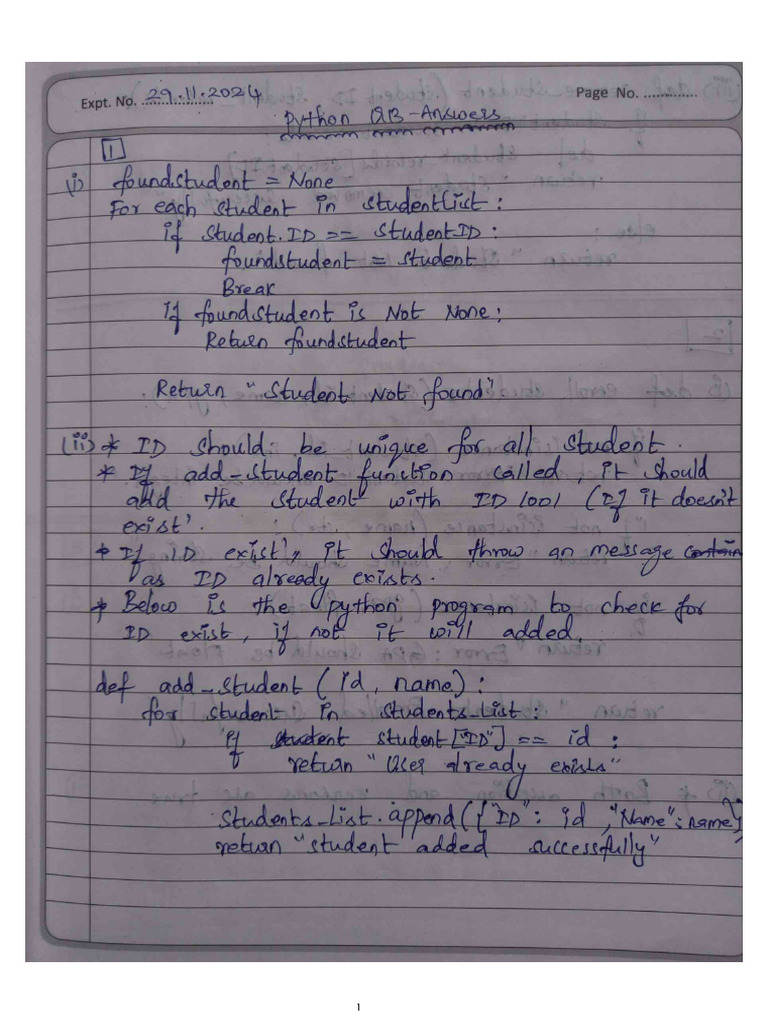 Expt. No. 29.11.2024
Page No. ..............
Python QB-Answers
1
(i) foundstudent = None
For each student in studentlist :
if Student.ID == StudentID :
foundstudent = student
Break
if foundstudent is Not None :
Return foundstudent
Return "Student Not found"
(ii) * ID should be unique for all student .
* If add-student function called, it should
add the student with ID 1001 (If it doesn't
exist'.
* If ID exist's, it should throw an message
as ID already exists.
* Below is the python program to check for
ID exist, if not it will added.
def add-student (id, name) :
for student in students-list :
if student student["ID"] == id :
return "User already exists"
Students-list.append({"ID": id, "Name": name}
return "student added successfully"
1